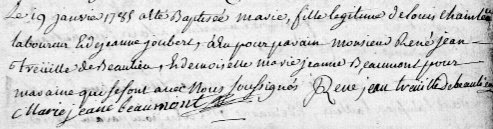 Le 19 janvier 1785 a été Baptisée marie, fille legitime de louis
laboureur & de jeanne joubert, a eu pour parain monsieur René jean
treüille de Beaulieu, & demoiselle marie jeanne Beaumont pour
maraine qui se sont avec nous soussignés René jean treuille de beaulieu
Marie jeanne beaumont